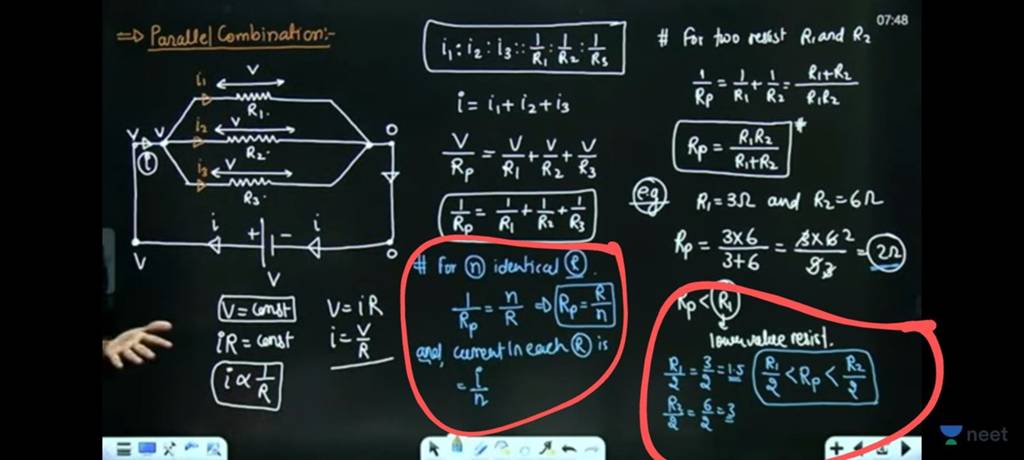 07:48
⇒ Parallel Combination:-
i₁
V
R₁
i₂
V
R₂
i₃
V
R₃
V V
i
i + - i
V V
V = const
iR = const
i ∝ 1/R
V = iR
i = V/R
i₁ : i₂ : i₃ :: 1/R₁ : 1/R₂ : 1/R₃
i = i₁ + i₂ + i₃
V/Rp = V/R₁ + V/R₂ + V/R₃
1/Rp = 1/R₁ + 1/R₂ + 1/R₃
# For n identical R.
1/Rp = n/R ⇒ Rp = R/n
and, current in each R is
= i/n
# For two resist R₁ and R₂
1/Rp = 1/R₁ + 1/R₂ = R₁+R₂/R₁R₂
Rp = R₁R₂/R₁+R₂ *
e.g R₁ = 3Ω and R₂ = 6Ω
Rp = 3×6/3+6 = 3×6 2/9 3 = 2Ω
Rp < R₁
lower value resist.
R₁/2 = 3/2 = 1.5
R₁/2 < Rp < R₂/2
R₂/2 = 6/2 = 3
neet